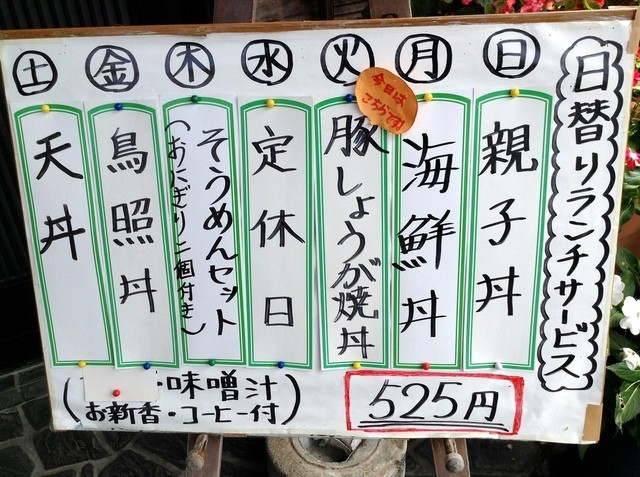 日替りランチサービス
日
親子丼
月
海鮮丼
今日は
こちらです!
火
豚しょうが焼丼
水
定休日
木
そうめんセット
(おにぎり二個付き)
金
鳥照丼
土
天丼
(・味噌汁
お新香・コーヒー付)
525円